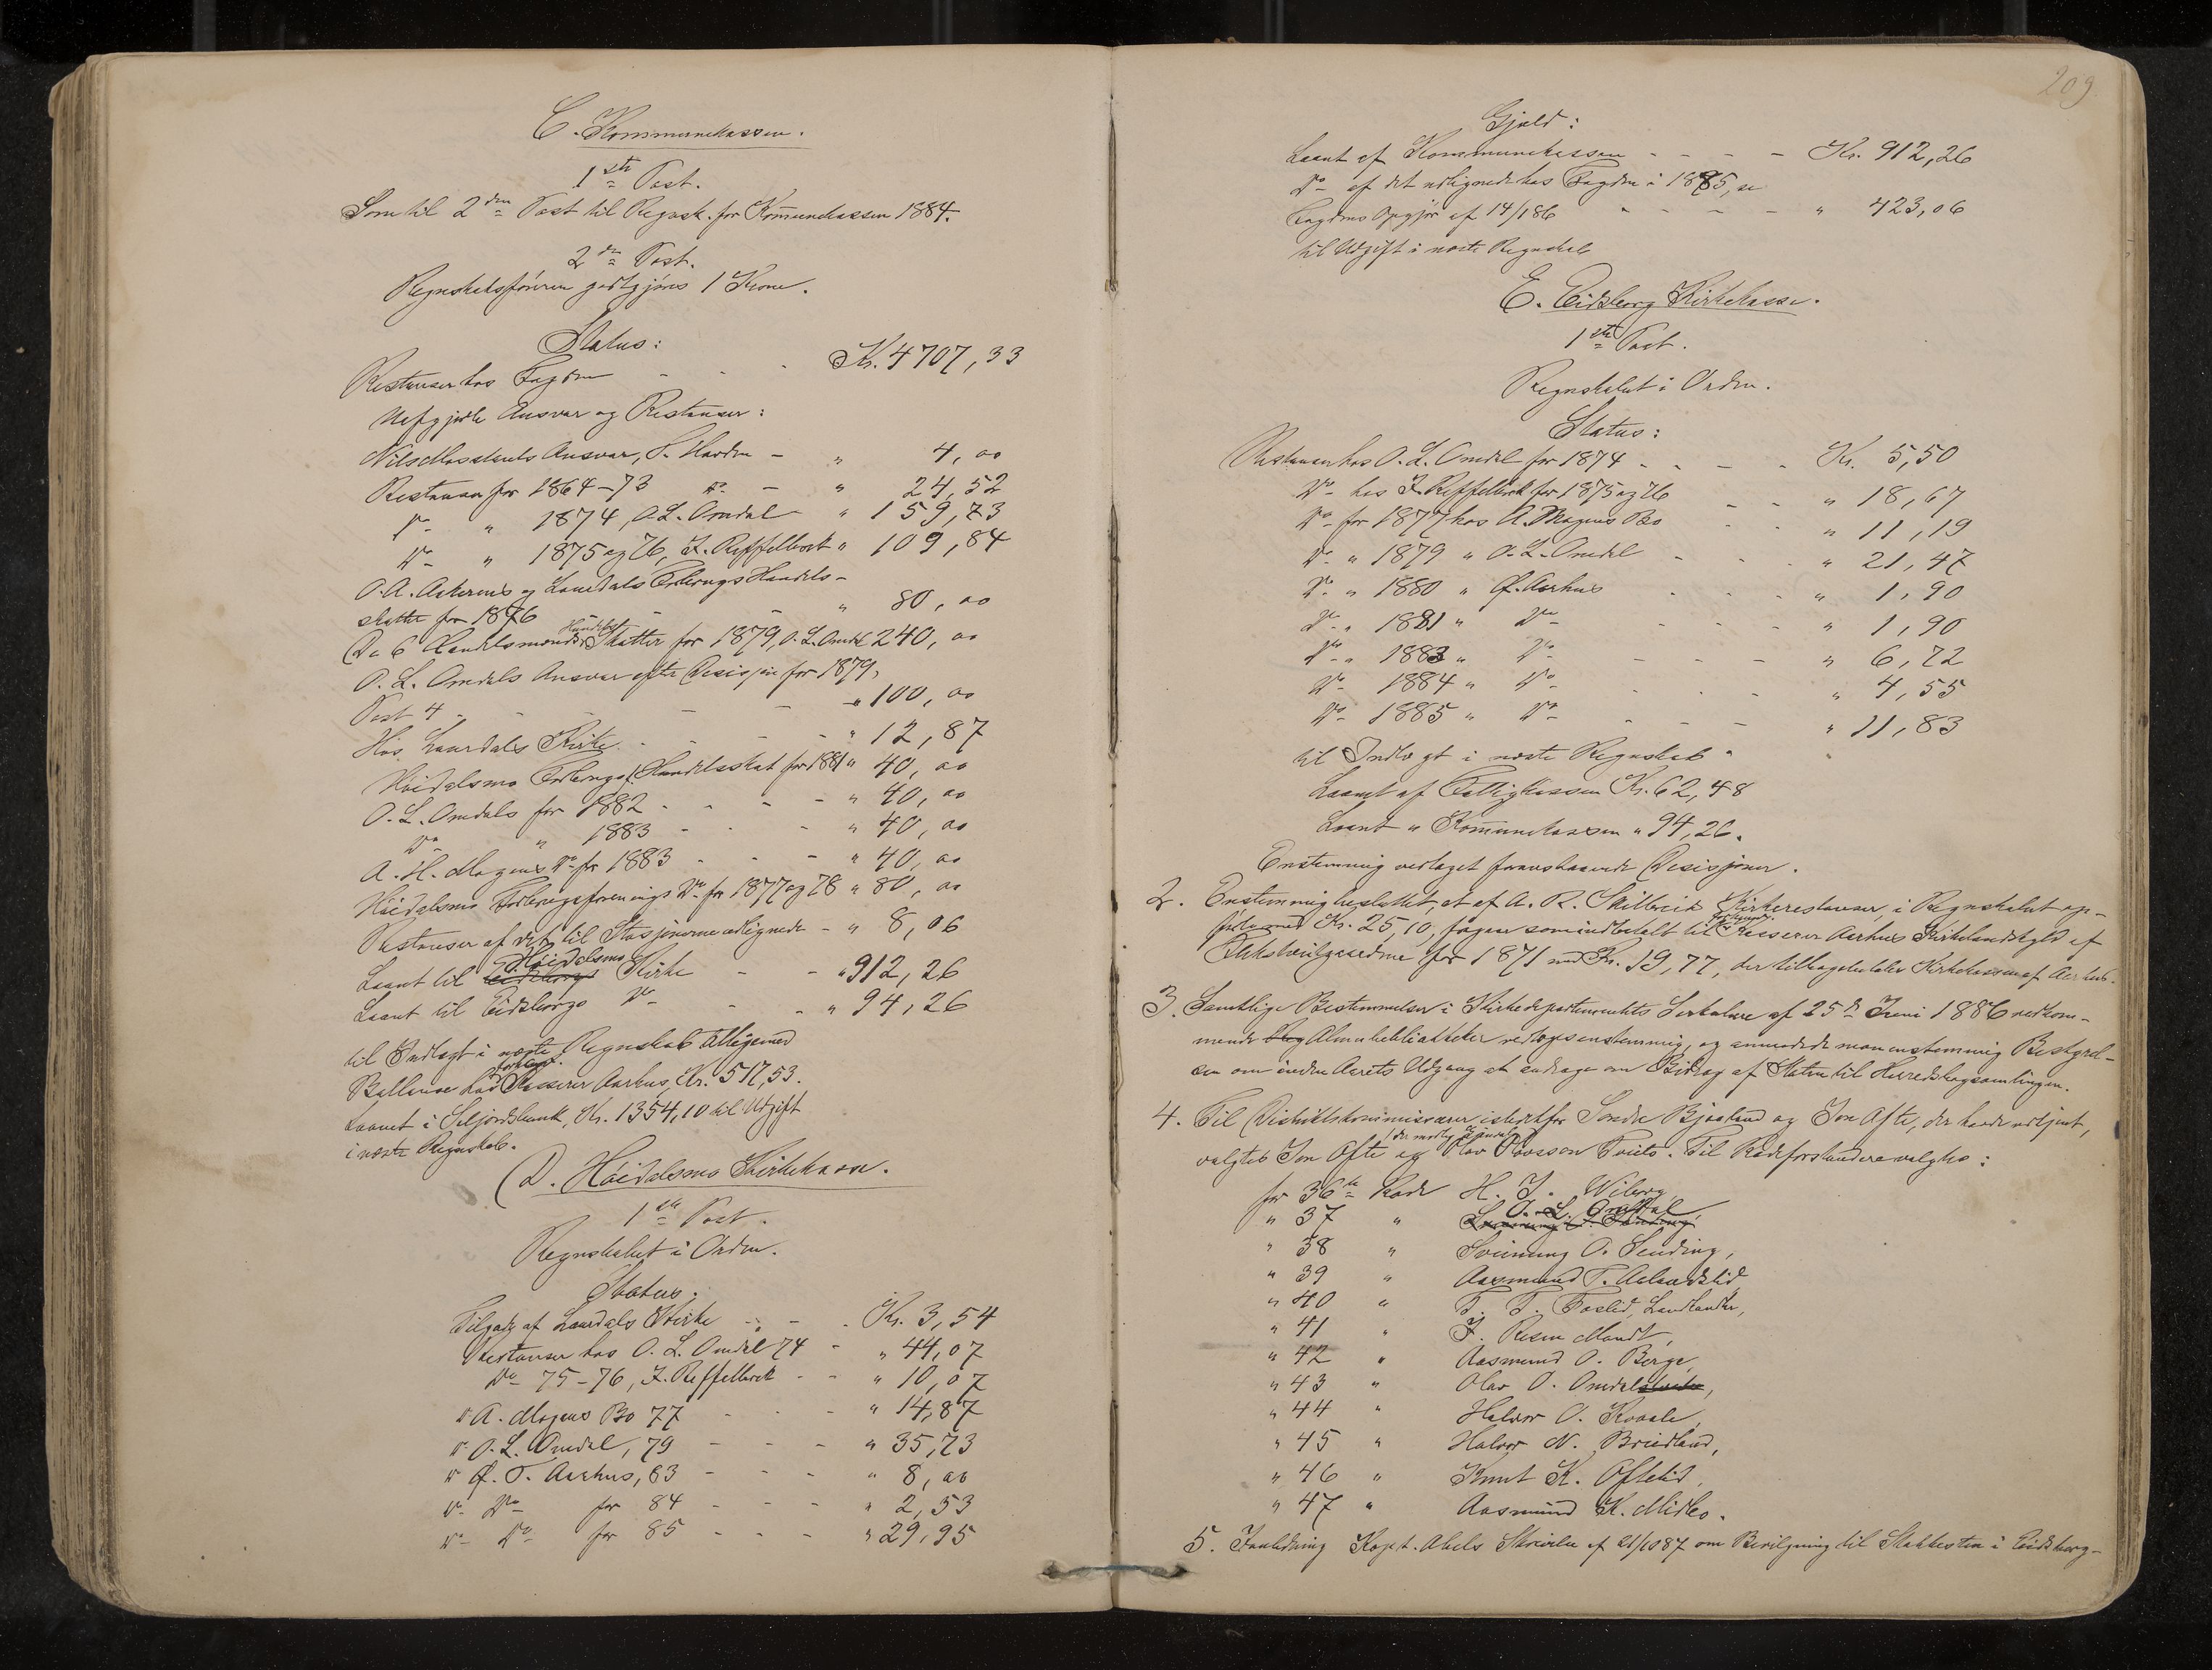 C. Kommunekassen.
1ste Post.
Som til 2den Post til Regnsk. for Kommunekassen 1884.
2den Post.
Regnskabsføreren godtgjøres 1 Krone.
Status:
Restanser hos Fogden - - - Kr. 4707,33
Uafgjorte Ansvar og Restanser:
Ansvar, - " 4,00
Restanser for 1864-73 Do - " 24,52
Do " 1874, O. L. Omdal " 159,73
Do " 1875 og 76, Reffelbek " 109,84
O. A. og Laurdals Forbrugs Handels-
skatter for 1876 - - " 80,00
6 Handelsmænds Skatter for 1879, O. L. Omdal 240,00
O. L. Omdals Ansvar efter Desisjon for 1879,
Post 4 - - - - " 100,00
Hos Laurdals Kirke - - - - " 12,87
Høidalsmo Forbrugsf. Handelsskat for 1881 " 40,00
O. L. Omdals for 1882 - - - - " 40,00
Do " 1883 - - - " 40,00
A. H. Mogens Do for 1883 - - - " 40,00
Høidalsmo Forbrugsforenings Do for 1877 og 78 " 80,00
Restanser af det til Stasjonerne udlignede - " 8,06
Laant til Høidalsmo Kirke - - " 912,26
Laant til Eidsborgs Do - - " 94,26
til Indtægt i næste Regnskab tilligemed
Ballanse hos Kasserer Aarhus, Kr. 517,53.
Laanet i Seljordsbank, Kr. 1354,10 til Udgift
i næste Regnskab.
D. Høidalsmo Kirkekasse.
1ste Post.
Regnskabet i Orden.
Status:
Tilgode af Laurdals Kirke - - - Kr. 3,54
Restanser hos O. L. Omdal 74 - " 44,07
Do 75-76, Reffelbek - - " 10,07
Do A. Mogens Bo 77 - - - " 14,87
Do O. L. Omdal, 79 - - - " 35,73
Do Ø. T. Aarhus, 83 - - - " 8,00
Do Do for 84 - - - " 2,53
Do Do for 85 - - - " 29,95
209
Gjæld:
Laant af Kommunekassen - - - - Kr. 912,26
Do af det udlignede hos Fogden i 1885, se
Fogdens Opgjør af 14/1 86 - - - - " 423,06
til Udgift i næste Regnskab
E. Eidsborg Kirkekasse.
1ste Post.
Regnskabet i Orden.
Status:
Restanser hos O. L. Omdal for 1874 - - - - Kr. 5,50
Do hos Reffelbek for 1875 og 76 - - " 18,67
Do for 1877 hos A. Mogens Bo - - " 11,19
Do " 1879 " O. L. Omdal - - - " 21,47
Do " 1880 " Ø. Aarhus - - - " 1,90
Do " 1881 " Do - - - - " 1,90
Do " 1883 " Do - - - " 6,72
Do 1884 " Do - - - " 4,55
Do 1885 " Do - - - " 11,83
til Indtægt i næste Regnskab.
Laant af Fattigkassen Kr. 62,48
Laant " Kommunekassen " 94,26.
Enstemmig vedtaget foranstaaende Desisjoner.
2. Enstemmig besluttet, at af A. R. Skilbreid Kirkerestanser, i Regnskabet op-
førte med Kr. 25,10, som indbetalt til Kasserer Aarhus Kirkelandskyld af
for 1871 med Kr. 19,77, der tilbagebetales Kirkekassen af Aarhus.
3. Samtlige Bestemmelser i Kirkedepartementets Serkulære af 25de Juni 1886 vedkom-
mende Almuebibliotheker vedtoges enstemmig, og anmodede man enstemmig Bestyrel-
sen om inden Aarets Udgang at andrage om Bidrag af Staten til Herredsbogsamlingen.
4. Til Distriktskommissærer istedetfor Sondre Bjaaland og Jon Ofte, der havde udtjent,
valgtes Jon Ofte og Olav Tveito. Til Rodeforstandere valgtes:
for 36te Rode H. J. Wiborg,
" 37 " O. L. Omdal
" 38 " Sveinung O. Sending,
" 39 " Aasmund T. Aalandslid
" 40 " T. T. Foslid, Landhandler,
" 41 " Mandt,
" 42 " Aasmund O. Berge,
" 43 " Olav O. Omdal,
" 44 " Halvor O. Kvaale,
" 45 " Halvor N. Breidland,
" 46 " Knut K. Oftelid,
" 47 " Aasmund K. Midbo.
5. I anledning Kapt. Abels Skrivelse af 21/10 87 om Bevilgning til Stakkestien i Eidsborg-